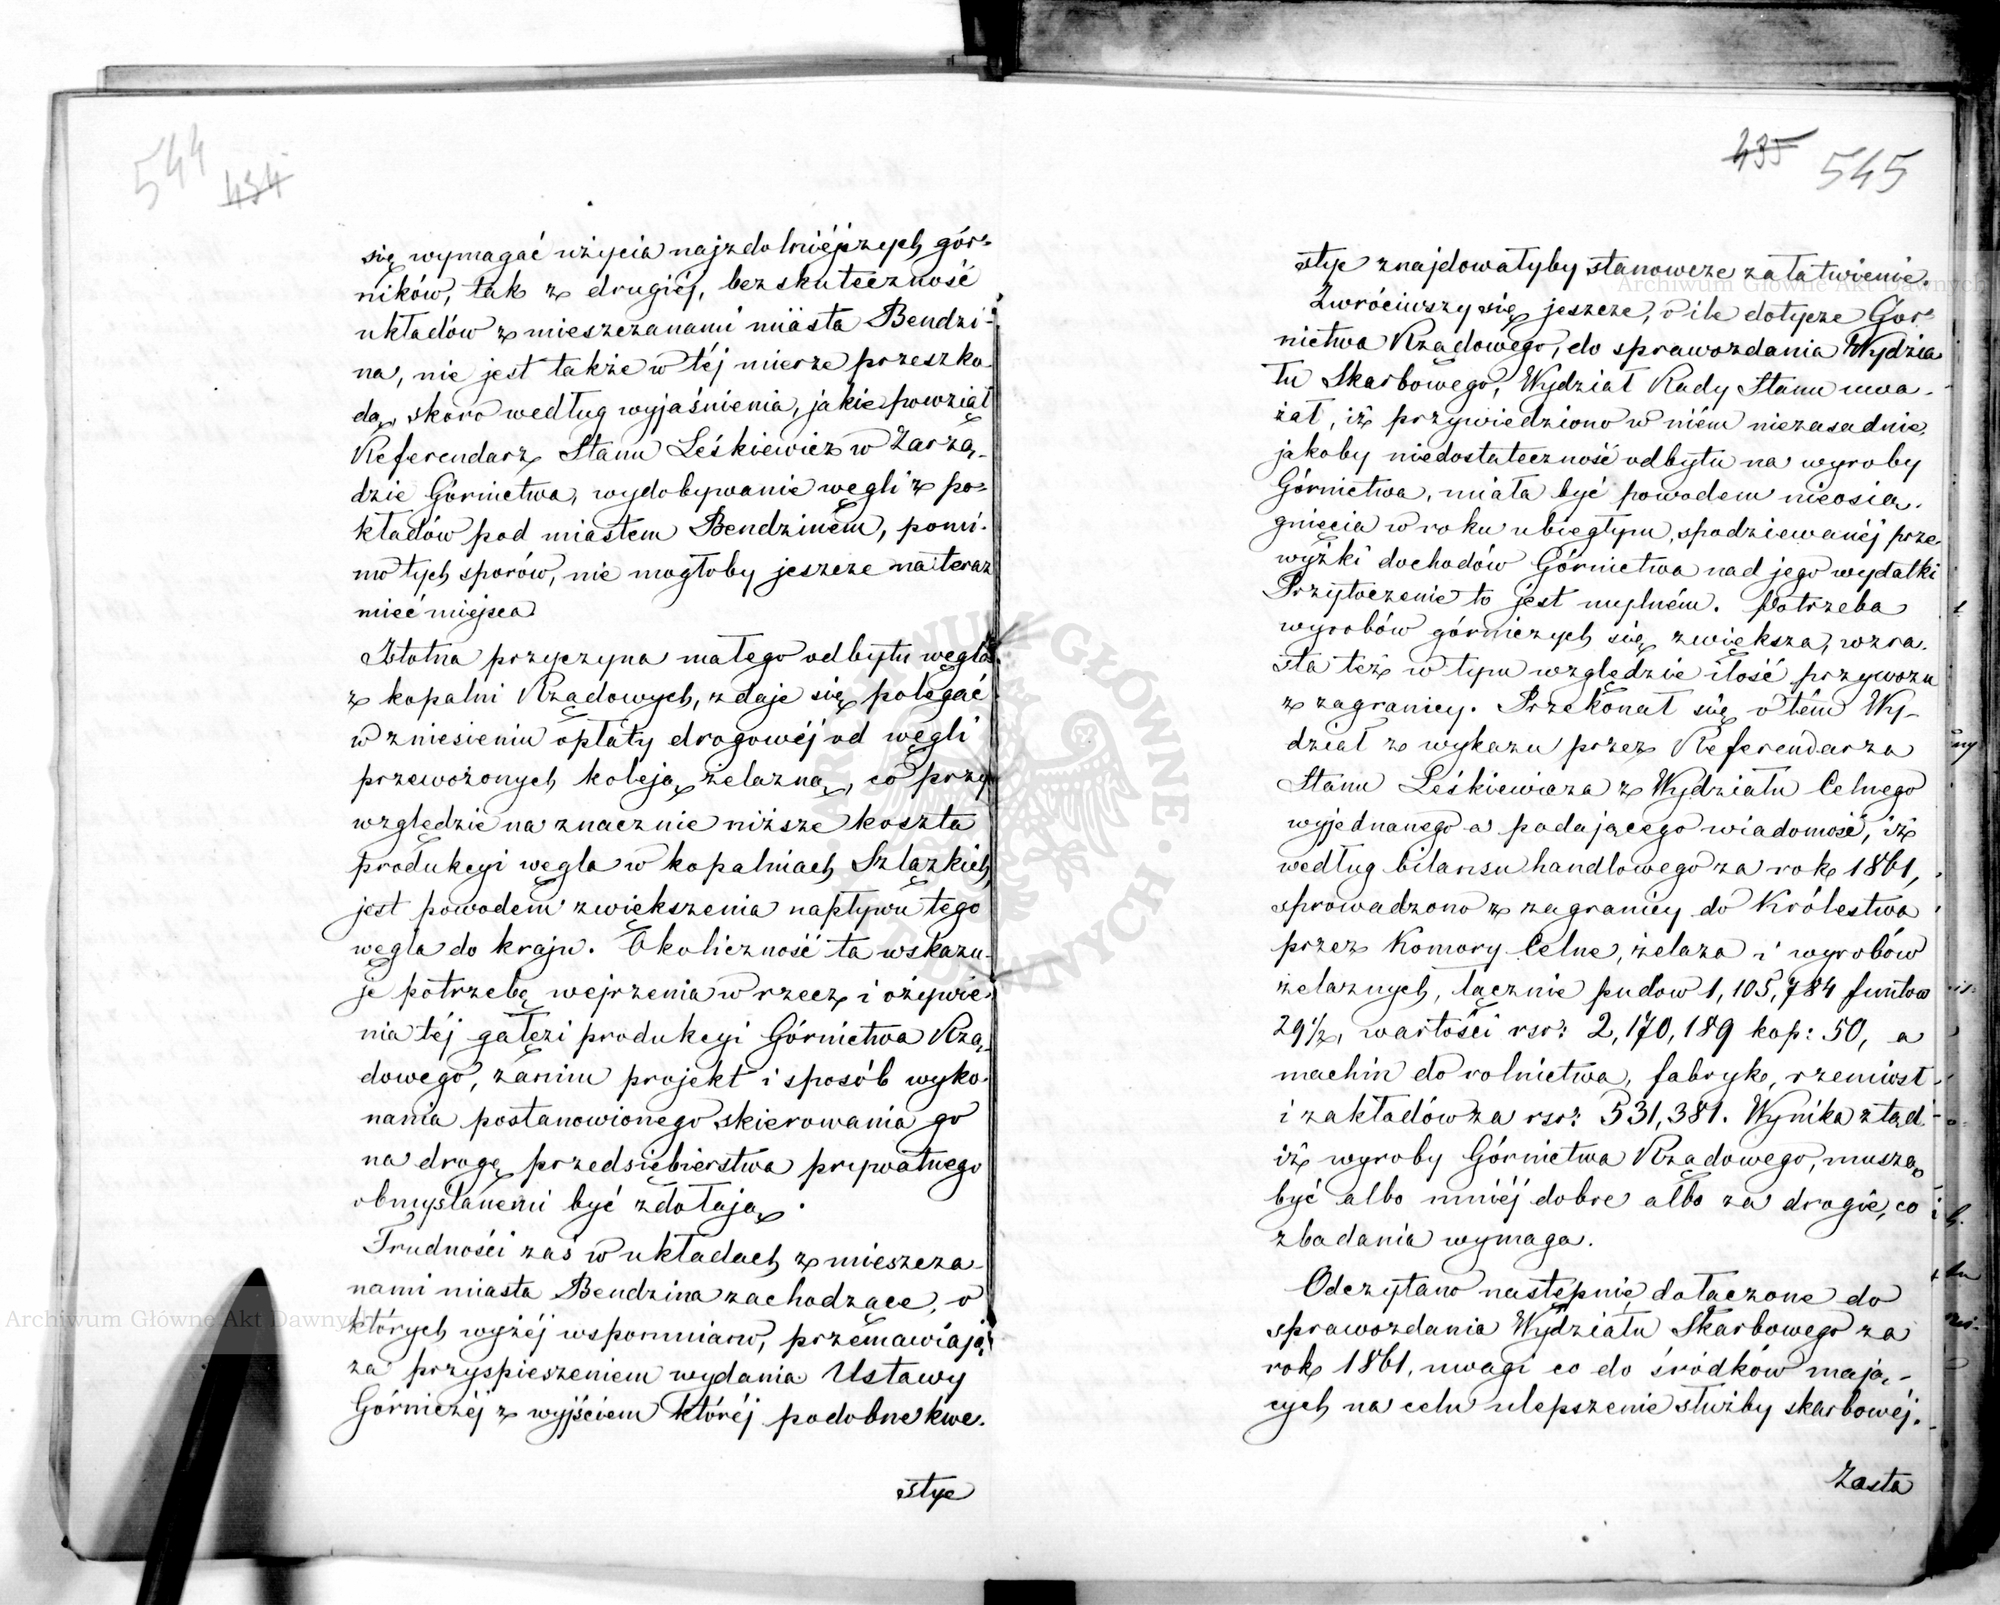 544 434
się wymagać użycia najzdolniéjszych gór=
ników, tak z drugiéj, bezskuteczność
układów z mieszczanami miasta Bendzi-
na, nie jest także w téj mierze przeszko-
dą, skoro według wyjaśnienia, jakie powziął
Referendarz Stanu Leśkiewicz w Zarzą-
dzie Górnictwa, wydobywanie węgli z po=
kładów pod miastem Bendzinem, pomi-
mo tych sporów, nie mogłoby jeszcze na teraz
mieć miejsca
Istotna przyczyna małego odbytu węgla
z kopalni Rządowych, zdaje się polegać
w zniesieniu opłaty drogowéj od węgli
przewożonych koleją żelazną, co przy
względzie na znacznie niższe koszta
produkcyi węgla w kopalniach Szlązkich,
jest powodem zwiększenia napływu tego
węgla do kraju. Okoliczność ta wskazu-
je potrzebę wejrzenia w rzecz i ożywie-
nia téj gałęzi produkcyi Górnictwa Rzą-
dowego, zanim projekt i sposób wyko-
nania postanowionego skierowania go
na drogę przedsiębierstwa prywatnego
obmyślanemi być zdołają.
Trudności zaś w układach z mieszcza-
nami miasta Bendzina zachodzące, o
których wyżéj wspomniano, przemawiają
za przyspieszeniem wydania Ustawy
Górniczéj z wyjściem któréj podobne kwe-
stye
435 545
stye znajdowałyby stanowcze załatwienie.
Zwróciwszy się jeszcze, o ile dotycze Gór=
nictwa Rządowego, do sprawozdania Wydzia
łu Skarbowego, Wydział Rady Stanu uwa-
żał, iż przywiedziono w niém niezasadnie,
jakoby niedostateczność odbytu na wyroby
Górnictwa, miała być powodem nieosią-
gnięcia w roku ubiegłym, spodziewanéj prze-
wyżki dochodów Górnictwa nad jego wydatki
Przytoczenie to jest mylném. Potrzeba
wyrobów górniczych się zwiększa, wzra-
sta też w tym względzie ilość przywozu
z zagranicy. Przekonał się o tém Wy-
dział z wykazu przez Referendarza
Stanu Leśkiewicza z Wydziału Celnego
wyjednanego a podającego wiadomość, iż
według bilansu handlowego za rok 1861,
sprowadzono z zagranicy do Królestwa
przez Komory Celne, żelaza i wyrobów
żelaznych, łącznie pudow 1,105,784 funtow
29½, wartości rsr: 2,170,189 kop: 50, a
machin do rolnictwa, fabryk, rzemiosł
i zakładów za rsr: 531,381. Wynika ztąd
iż wyroby Górnictwa Rządowego, muszą
być albo mniéj dobre albo za drogie, co
zbadania wymaga.
Odczytano następnie dołączone do
sprawozdania Wydziału Skarbowego za
rok 1861, uwagi co do środków mają-
cych na celu ulepszenie służby skarbowéj.
Zasta
ARCHIWUM GŁÓWNE AKT DAWNYCH
Archiwum Główne Akt Dawnych
Archiwum Główne Akt Dawnych